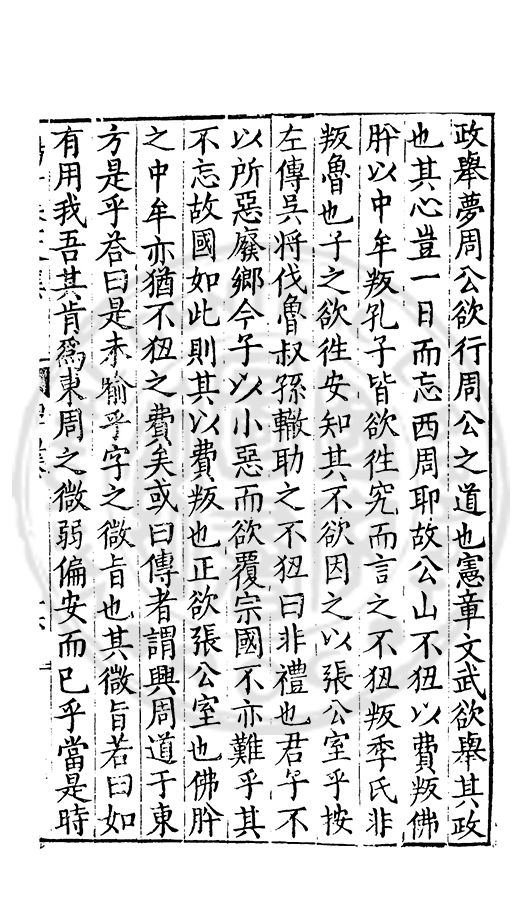 政舉夢周公欲行周公之道也憲章文武欲舉其政
也其心豈一日而忘西周耶故公山不狃以費叛佛
肸以中牟叛孔子皆欲徃究而言之不狃叛季氏非
叛魯也子之欲徃安知其不欲因之以張公室乎按
左傳吳將伐魯叔孫輒助之不狃曰非禮也君子不
以所惡廢鄉今子以小惡而欲覆宗國不亦難乎其
不忘故國如此則其以費叛也正欲張公室也佛肸
之中牟亦猶不狃之費矣或曰傳者謂興周道于東
方是乎荅曰是未喻乎字之微旨也其微旨若曰如
有用我吾其肯爲東周之微弱偏安而已乎當是時